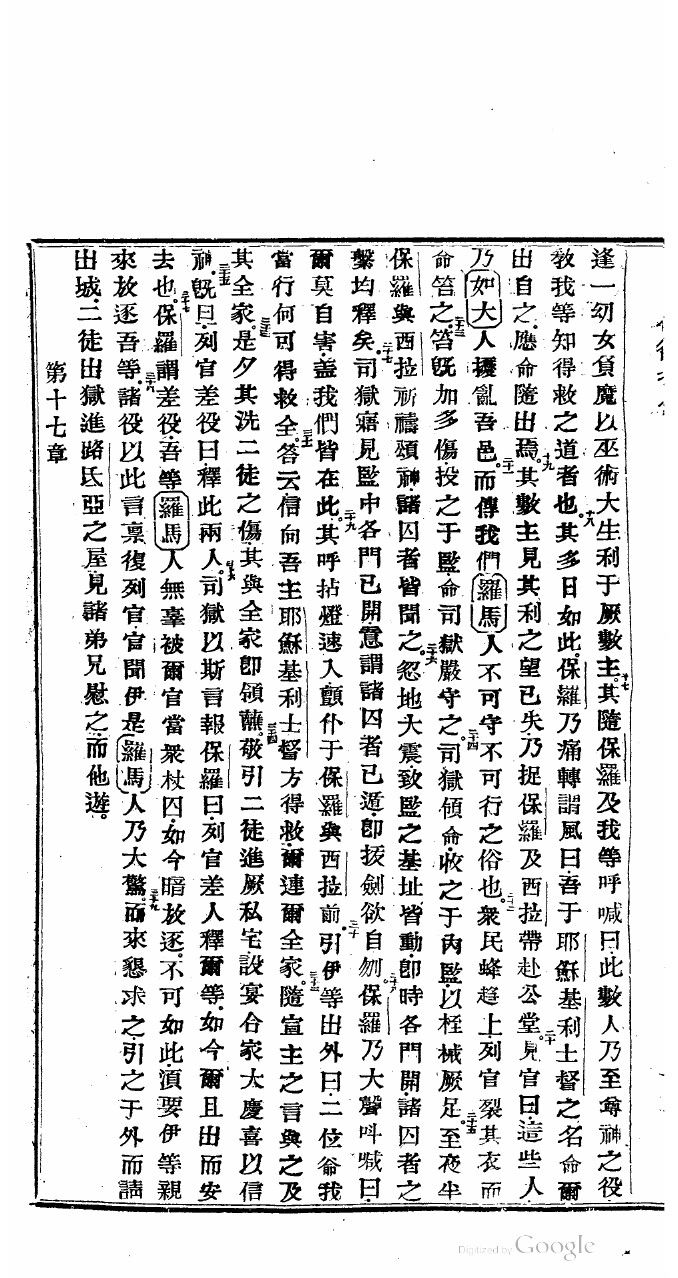 逢一幼女負魔以巫術大生利于厥數主。其隨保羅及我等呼喊曰此數人乃至尊神之役
教我等知得救之道者也。其多日如此。保羅乃痛轉謂風曰吾于耶穌基利士督之名命爾
出自之。應命隨出焉。其數主見其利之望已失乃捉保羅及西拉帶赴公堂。見官曰這些人
乃如大人擾亂吾邑。而傳我們羅馬人不可守不可行之俗也。衆民蜂趨上列官裂其衣而
命笞之。笞旣加多傷投之于監命司獄嚴守之。司獄領命收之于內監以桎械厥足。至夜半
保羅與西拉祈禱頌神。諸囚者皆聞之。忽地大震致監之基址皆動。卽時各門開諸囚者之
繫均釋矣。司獄寤見監中各門已開意謂諸囚者已遁。卽拔劍欲自刎。保羅乃大聲叫喊曰
爾莫自害。蓋我們皆在此。其呼拈燈速入顫仆于保羅與西拉前。引伊等出外曰二位爺我
當行何可得救全。答云信向吾主耶穌基利士督方得救爾連爾全家。隨宣主之言與之及
其全家。是夕其洗二徒之傷其與全家卽領蘸。敬引二徒進厥私宅設宴合家大慶喜以信
神。旣日列官差役曰釋此兩人。司獄以斯言報保羅曰列官差人釋爾等如今爾且出而安
去也。保羅謂差役吾等羅馬人無辜被爾官當衆杖囚如今暗放逐。不可如此須要伊等親
來放逐吾等。諸役以此言稟復列官官聞伊是羅馬人乃大驚。而來懇求之引之于外而請
出城。二徒出獄進路氐亞之屋見諸弟兄慰之而他遊。
第十七章
十七
十八
十九
二十
二十二
二十三
二十四
二十五
二十六
二十七
二十八
二十九
三十
三十一
三十二
三十三
三十四
三十五
三十六
三十七
三十八
三十九
Digitized by Google